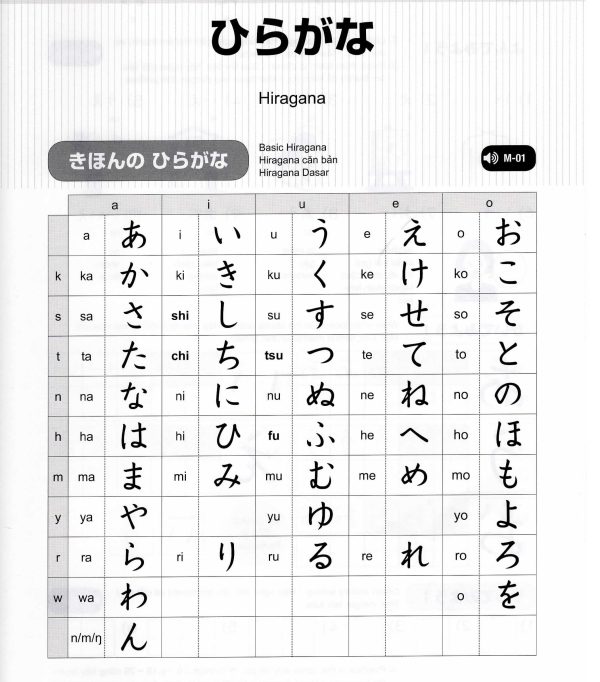 ひらがな
Hiragana
きほんの ひらがな
Basic Hiragana
Hiragana căn bản
Hiragana Dasar
M-01
a i u e o
a あ i い u う e え o お
k ka か ki き ku く ke け ko こ
s sa さ shi し su す se せ so そ
t ta た chi ち tsu つ te て to と
n na な ni に nu ぬ ne ね no の
h ha は hi ひ fu ふ he へ ho ほ
m ma ま mi み mu む me め mo も
y ya や yu ゆ yo よ
r ra ら ri り ru る re れ ro ろ
w wa わ o を
n/m/ŋ ん